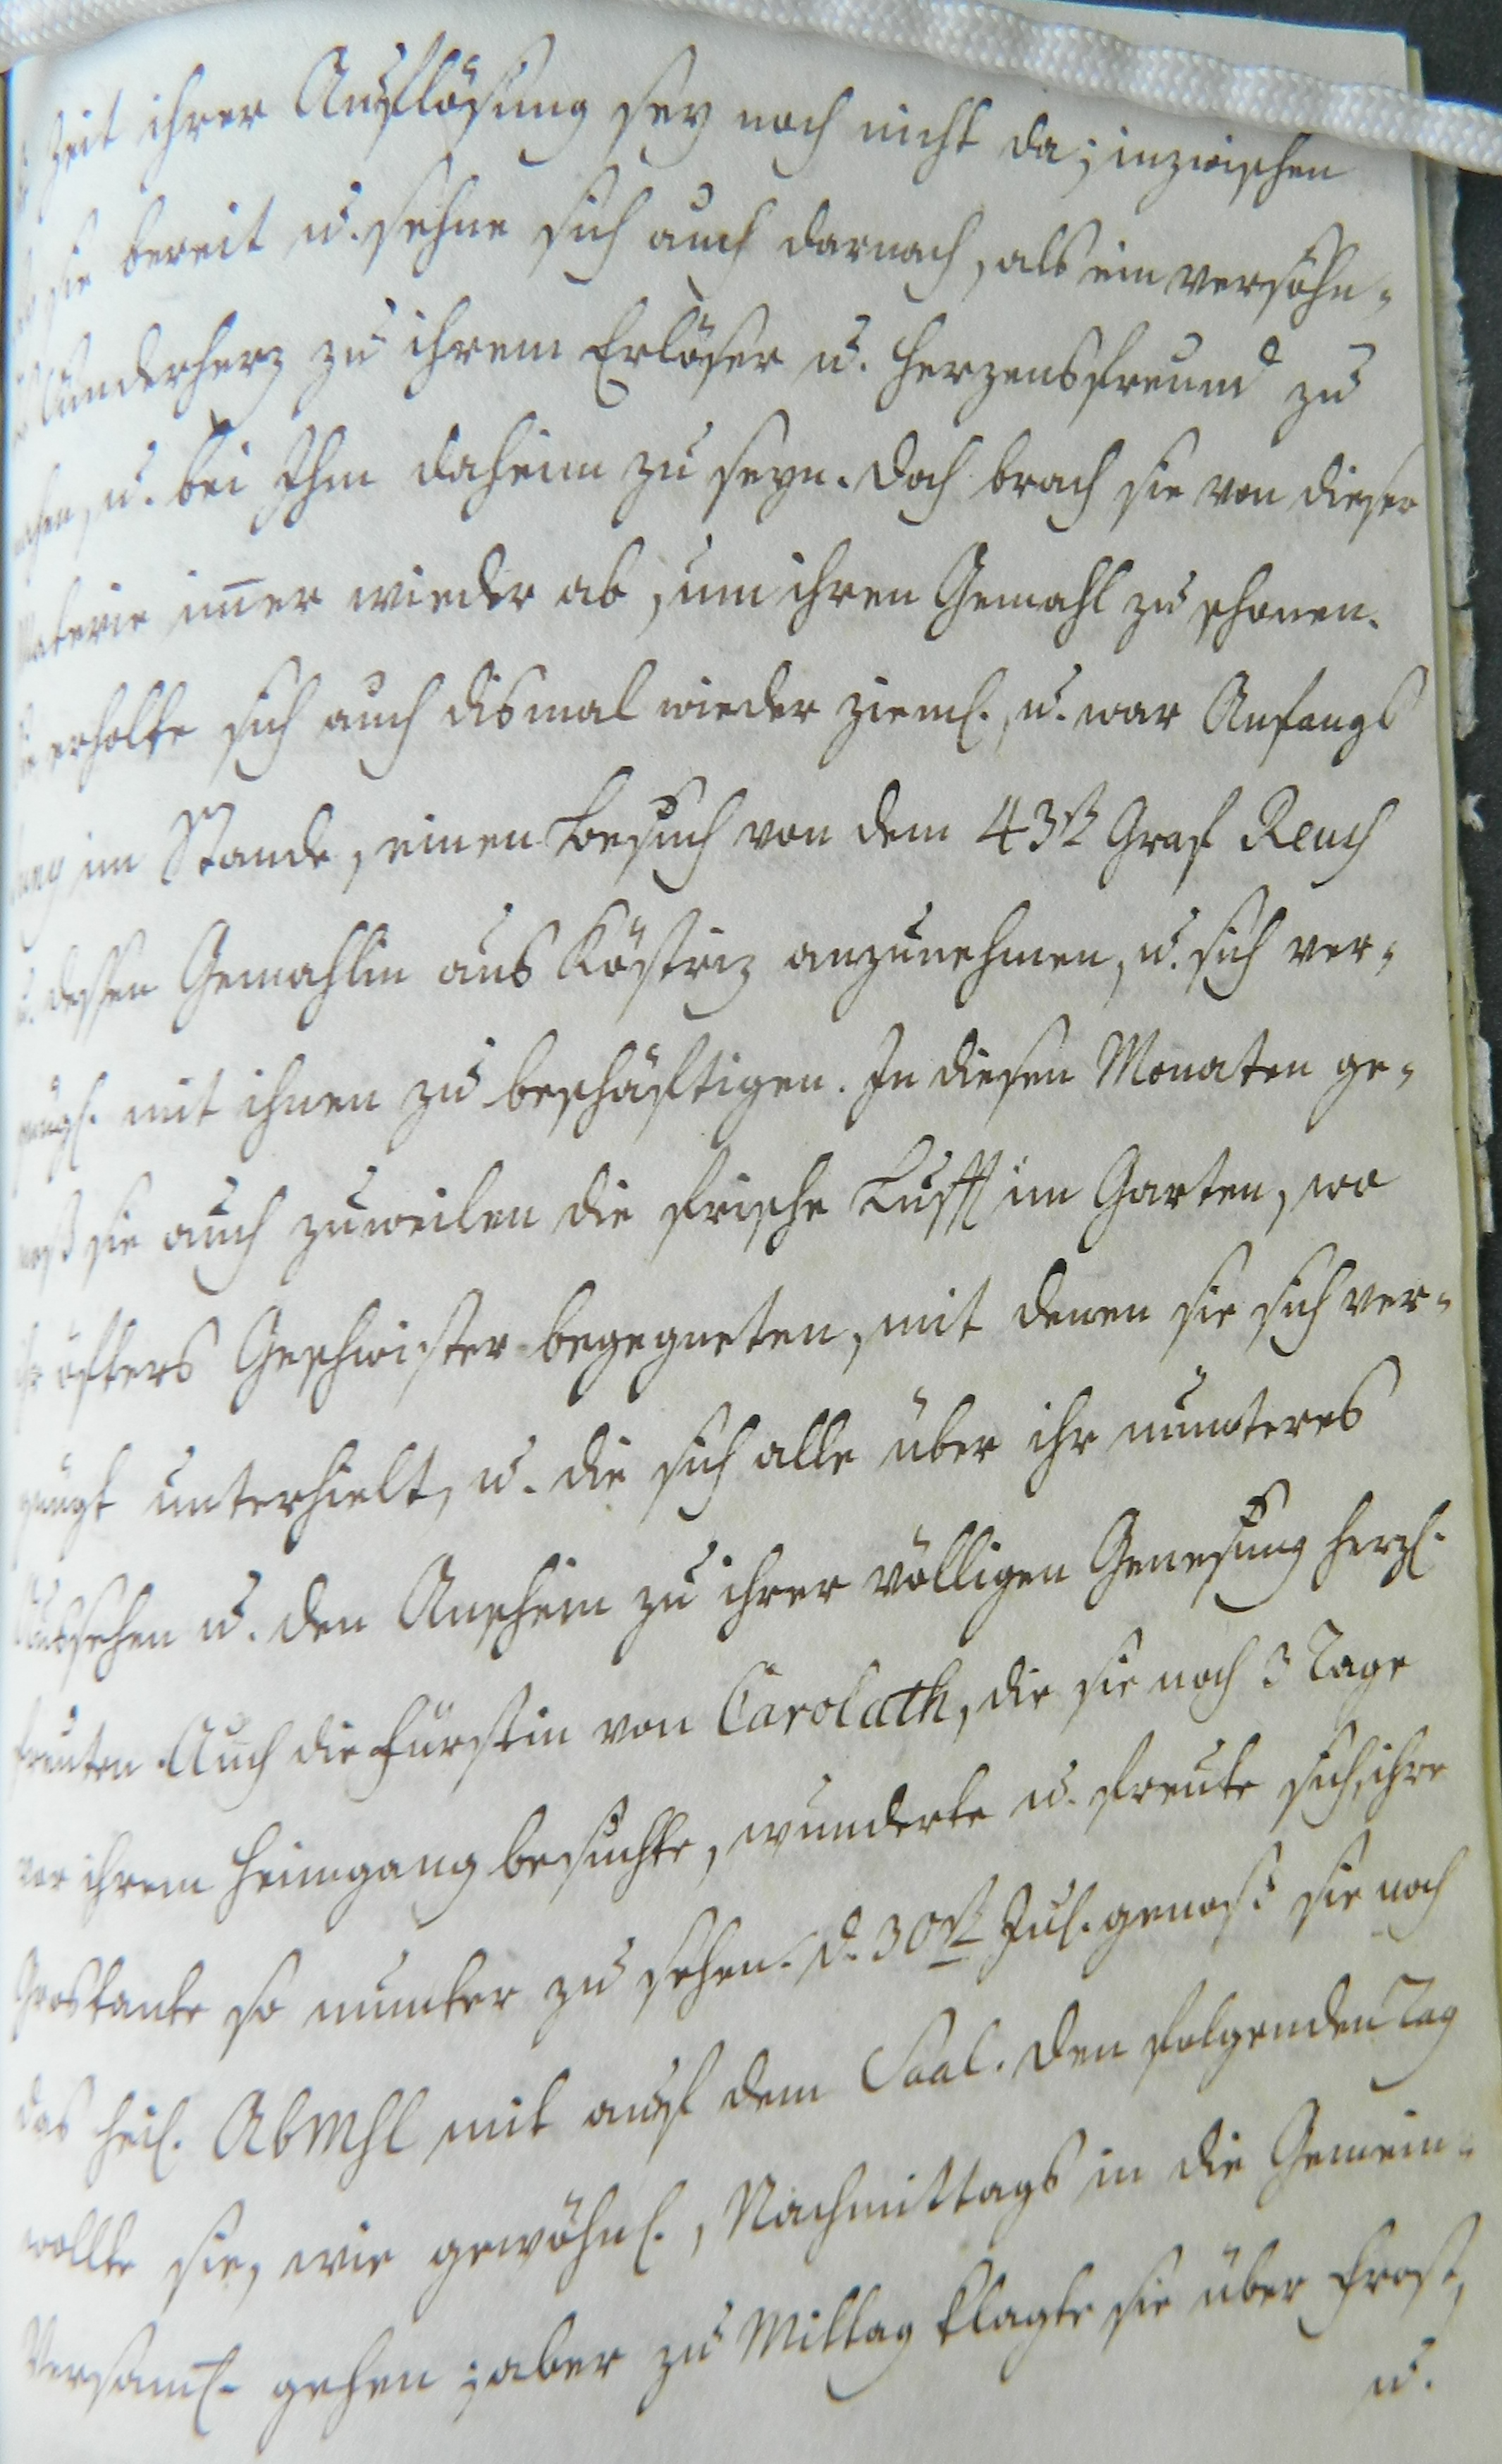 Zeit ihrer Auflösung sey noch nicht da; inzwischen
sie bereit u. sehne sich auch darnach, als ein versöhn-
Sünderherz zu ihrem Erlöser u. Herzensfreund zu
u. bei Ihm daheim zu seyn. Doch brach sie von dieser
Materie im̄er wieder ab, um ihren Gemahl zu schonen.
erholte sich auch dismal wieder zieml. u. war Anfangs
im Stande, einen Besuch von dem 43st Graf Reuß
u. dessen Gemahlin aus Köstriz anzunehmen, u. sich ver-
gnügl. mit ihnen zu beschäftigen. In diesen Monaten ge-
noß sie auch zuweilen die frische Lufft im Garten, wo
öfters Geschwister begegneten, mit denen sie sich ver-
gnügt unterhielt, u. die sich alle über ihr munteres
Aussehen u. den Anschein zu ihrer völligen Genesung herzl.
freuten. Auch die Fürstin von Carolath, die sie noch 3 Tage
vor ihrem Heimgang besuchte, wunderte u. freute sich, ihre
Grostante so munter zu sehen. d. 30st Jul. genoß sie noch
das heil. AbMhl mit auf dem Saal. Den folgenden Tag
wollte sie, wie gewöhnl., Nachmittags in die Gemein-
Versam̄l. gehen; aber zu Mittag klagte sie über Frost,
u.